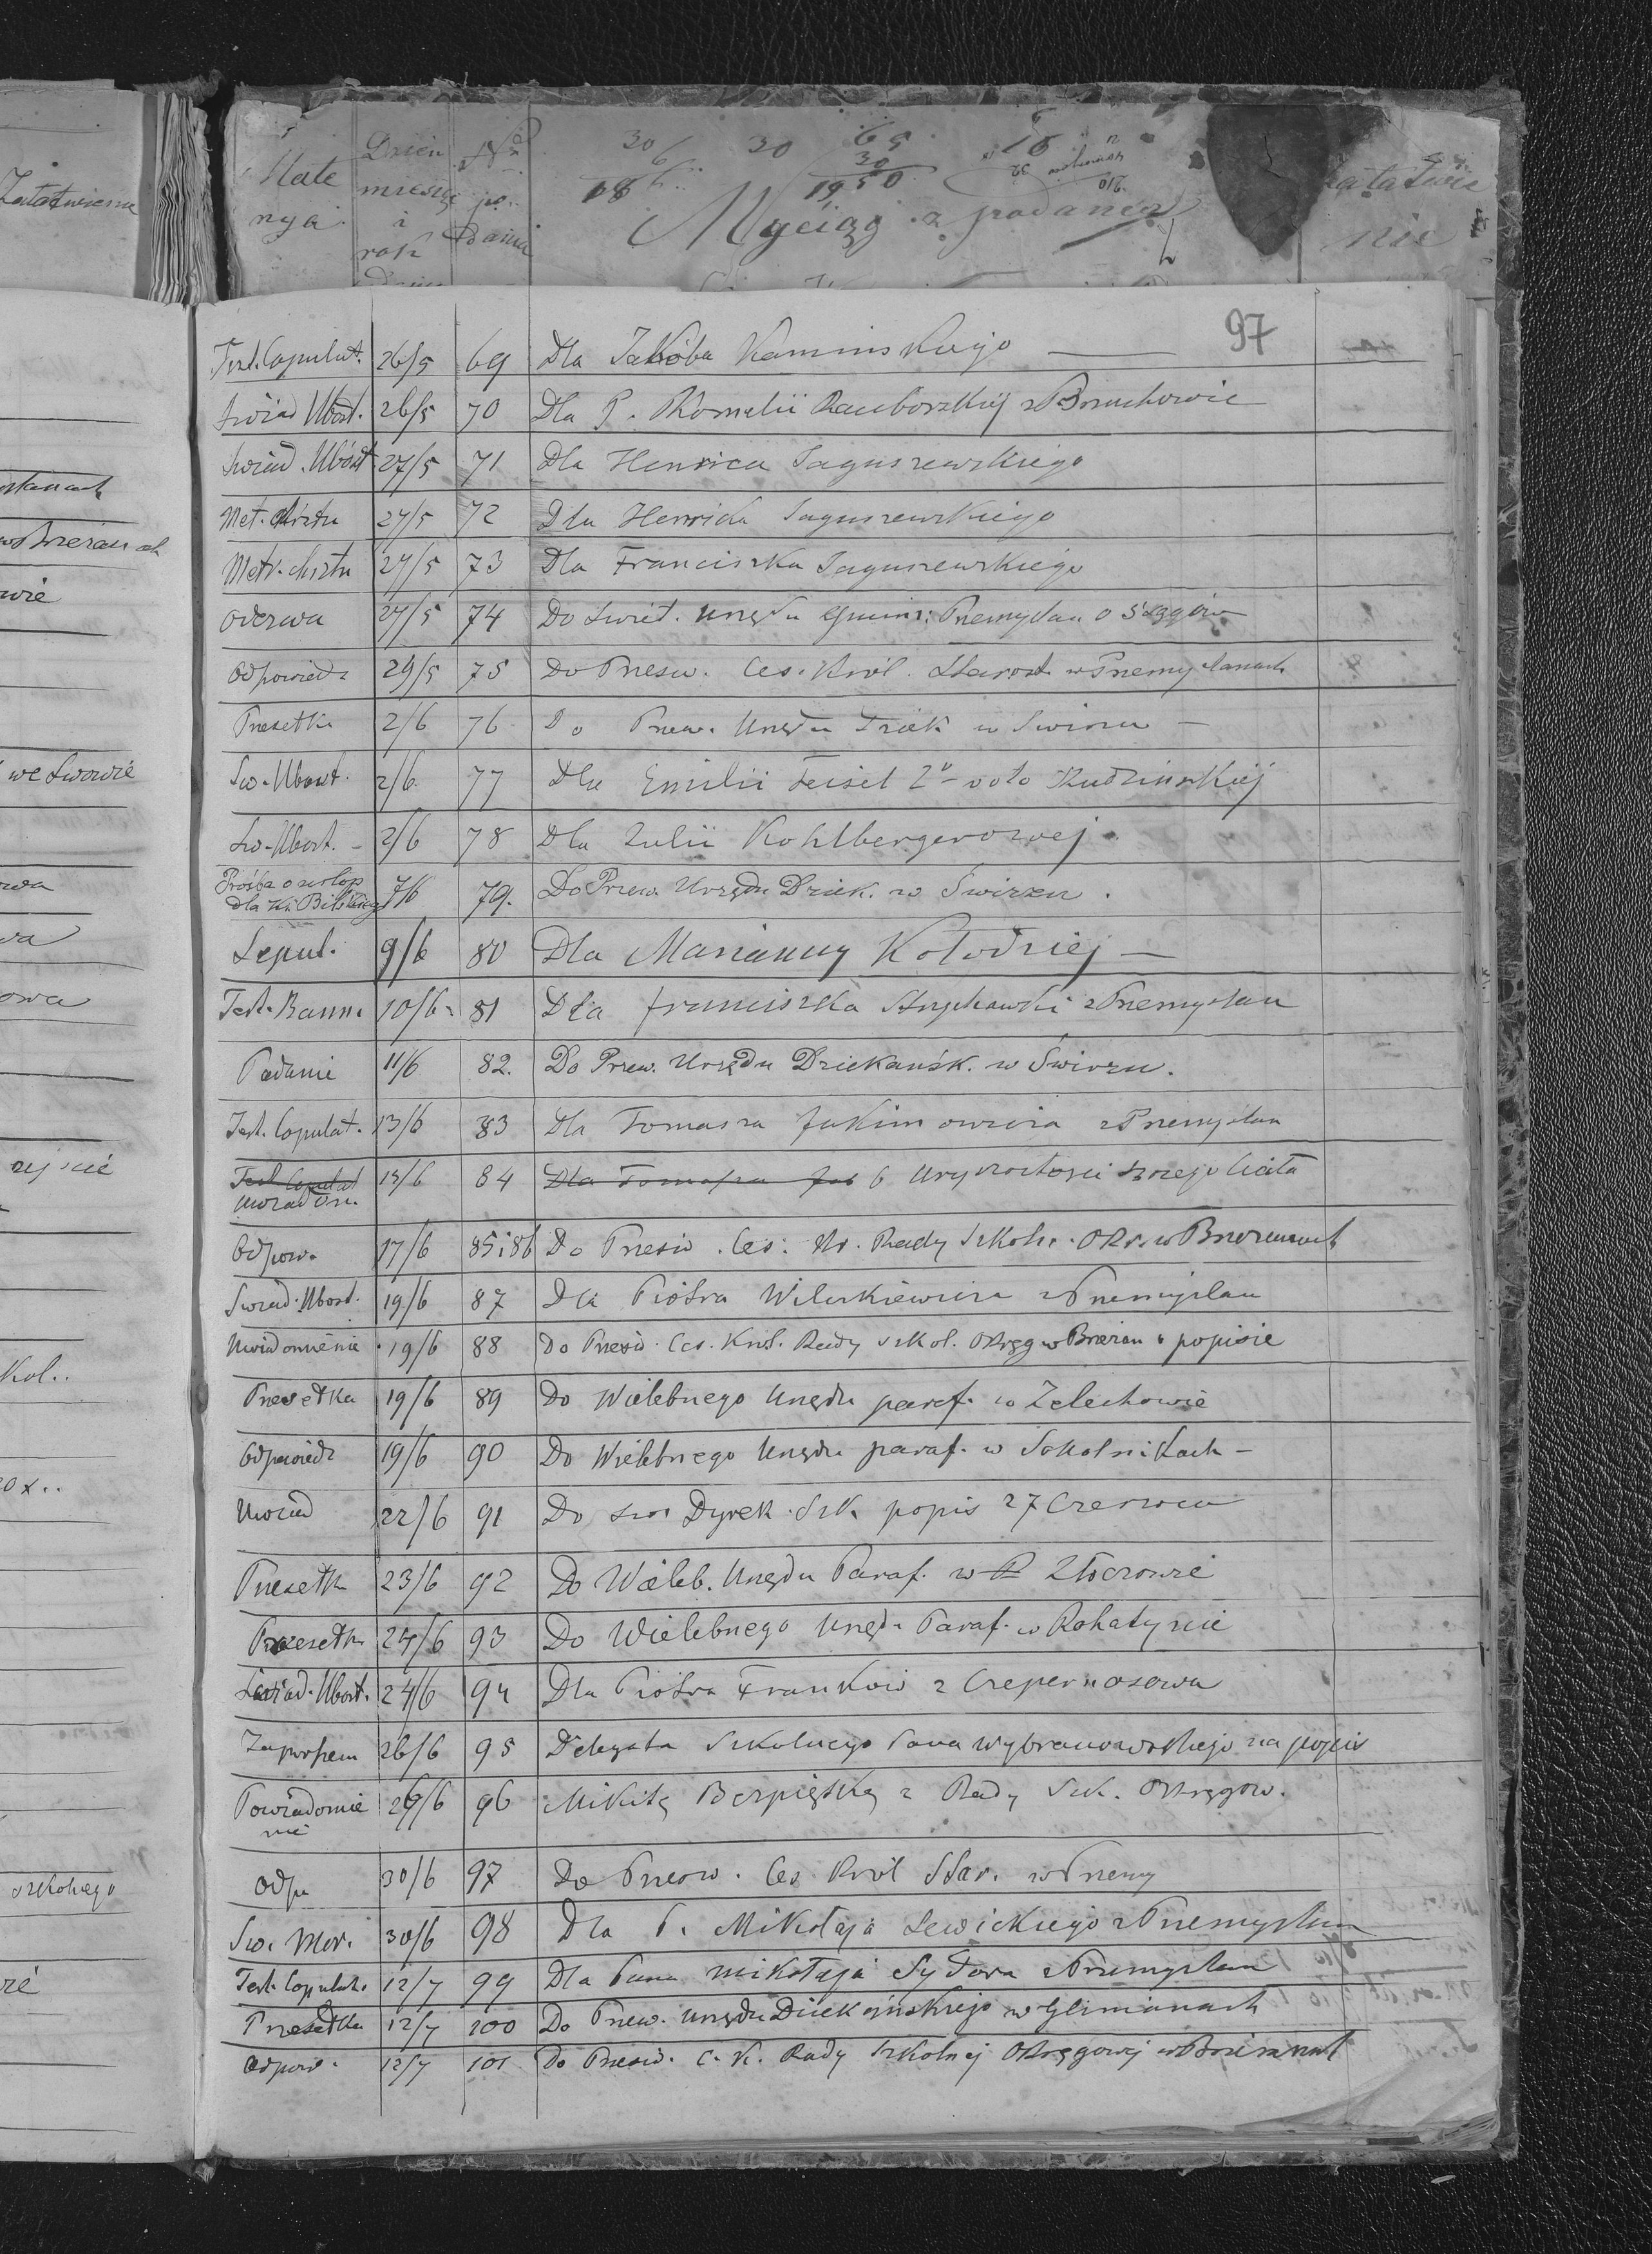 Zatatwienie
Mate
nya
Dzień
miesię
i
rok
Nr
po
dania
30
6
186
30
65
30
1950
16
32
210
Wyciąg z podaneń
zatatwie
nie
97
Test. Copulat. 26/5 69 Dla Jakóba Kaminskiego
świad Ubóst. 26/5 70 Dla P. Kornelii Raciborzkiej z Brzuchowic
świad. Ubóst 27/5 71 Dla Henrica Jaguszewskiego
Met. chrztu 27/5 72 Dla Henrida Jaguszewskiego
Metr. chrztu 27/5 73 Dla Franciszka Jaguszewskiego
Odezwa 27/5 74 Do świet. Urzędu gmin: Przemyślan o sągów
Odpowiedz 29/5 75 Do Przesw. Ces. Król. Starost. w Przemyślanach
Przesełka 2/6 76 Do Przew. Urzędu Dziek w Swirzu
Sw. Ubost. 2/6 77 Dla Emilii Teisel 2º voto Rudzińskiéj
Sw. Ubost. 2/6 78 Dla Julii Kohlbergerowej
Prośba o urlop
dla Ks. Bilskiego 7/6 79. Do Przew. Urzędu Dziek. w Swirzu.
Sepul. 9/6 80 Dla Marianny Kołodziej
Test. Bann. 10/6 81 Dla franciszka z Przemyslan
Podanie 11/6 82. Do Przew. Urzędu Dziekańsk. w Świrzu.
Test. Copulat. 13/6 83 Dla Tomasza Jakimowicza z Przemyslan
Test Copulat
uwiadom. 13/6 84 Dla Tomasza Jak O Uroczystości Bożego Ciała
Odpow. 17/6 85 i 86 Do Przesw. Ces. Kr. Rady szkoln. Okr. w Brzezanach
Swiad. Ubost. 19/6 87 Dla Piotra Wilczkiewicza z Przemyslan
Uwiadomienie 19/6 88 Do Przesw. Ces. Król. Rady szkol. Okręg w Brzezan o popisie
Przesełka 19/6 89 Do Wielebnego Urzędu paraf. w Zelechowie
Odpowiedz 19/6 90 Do Wielebnego Urzędu paraf. w Sokolnikach
Uwiad 22/6 91 Do sw Dyrek. Szk. popis 27 Czerwca
Przesełk 23/6 92 Do Wieleb. Urzędu Paraf. w Złoczowie
Przesełk 24/6 93 Do Wielebnego Urzęd. Paraf. w Rohatynie
Swiad. Ubost. 24/6 94 Dla Piotra Franków z Czepernosowa
Zaproszen 26/6 95 Delegata szkolnego Pana Wybranowskiego na popis
Powiadomie
nie 26/6 96 Mikitę Bezpiętkę z Rady Szk. Okręgow.
Odp 30/6 97 Do Przesw. Ces Król Star. w Przemy
Sw. Mor. 30/6 98 Dla P. Mikołaja Lewickiego z Przemyslan
Test. Copulat. 12/7 99 Dla Pana Mikołaja Sydora z Przemyslan
Przesełka 12/7 100 Do Przew. Urzędu Dziekańskiego w Glinianach
Odpow. 12/7 101 Do Przesw. C. K. Rady szkolnej Okręgowej w Brzezanach